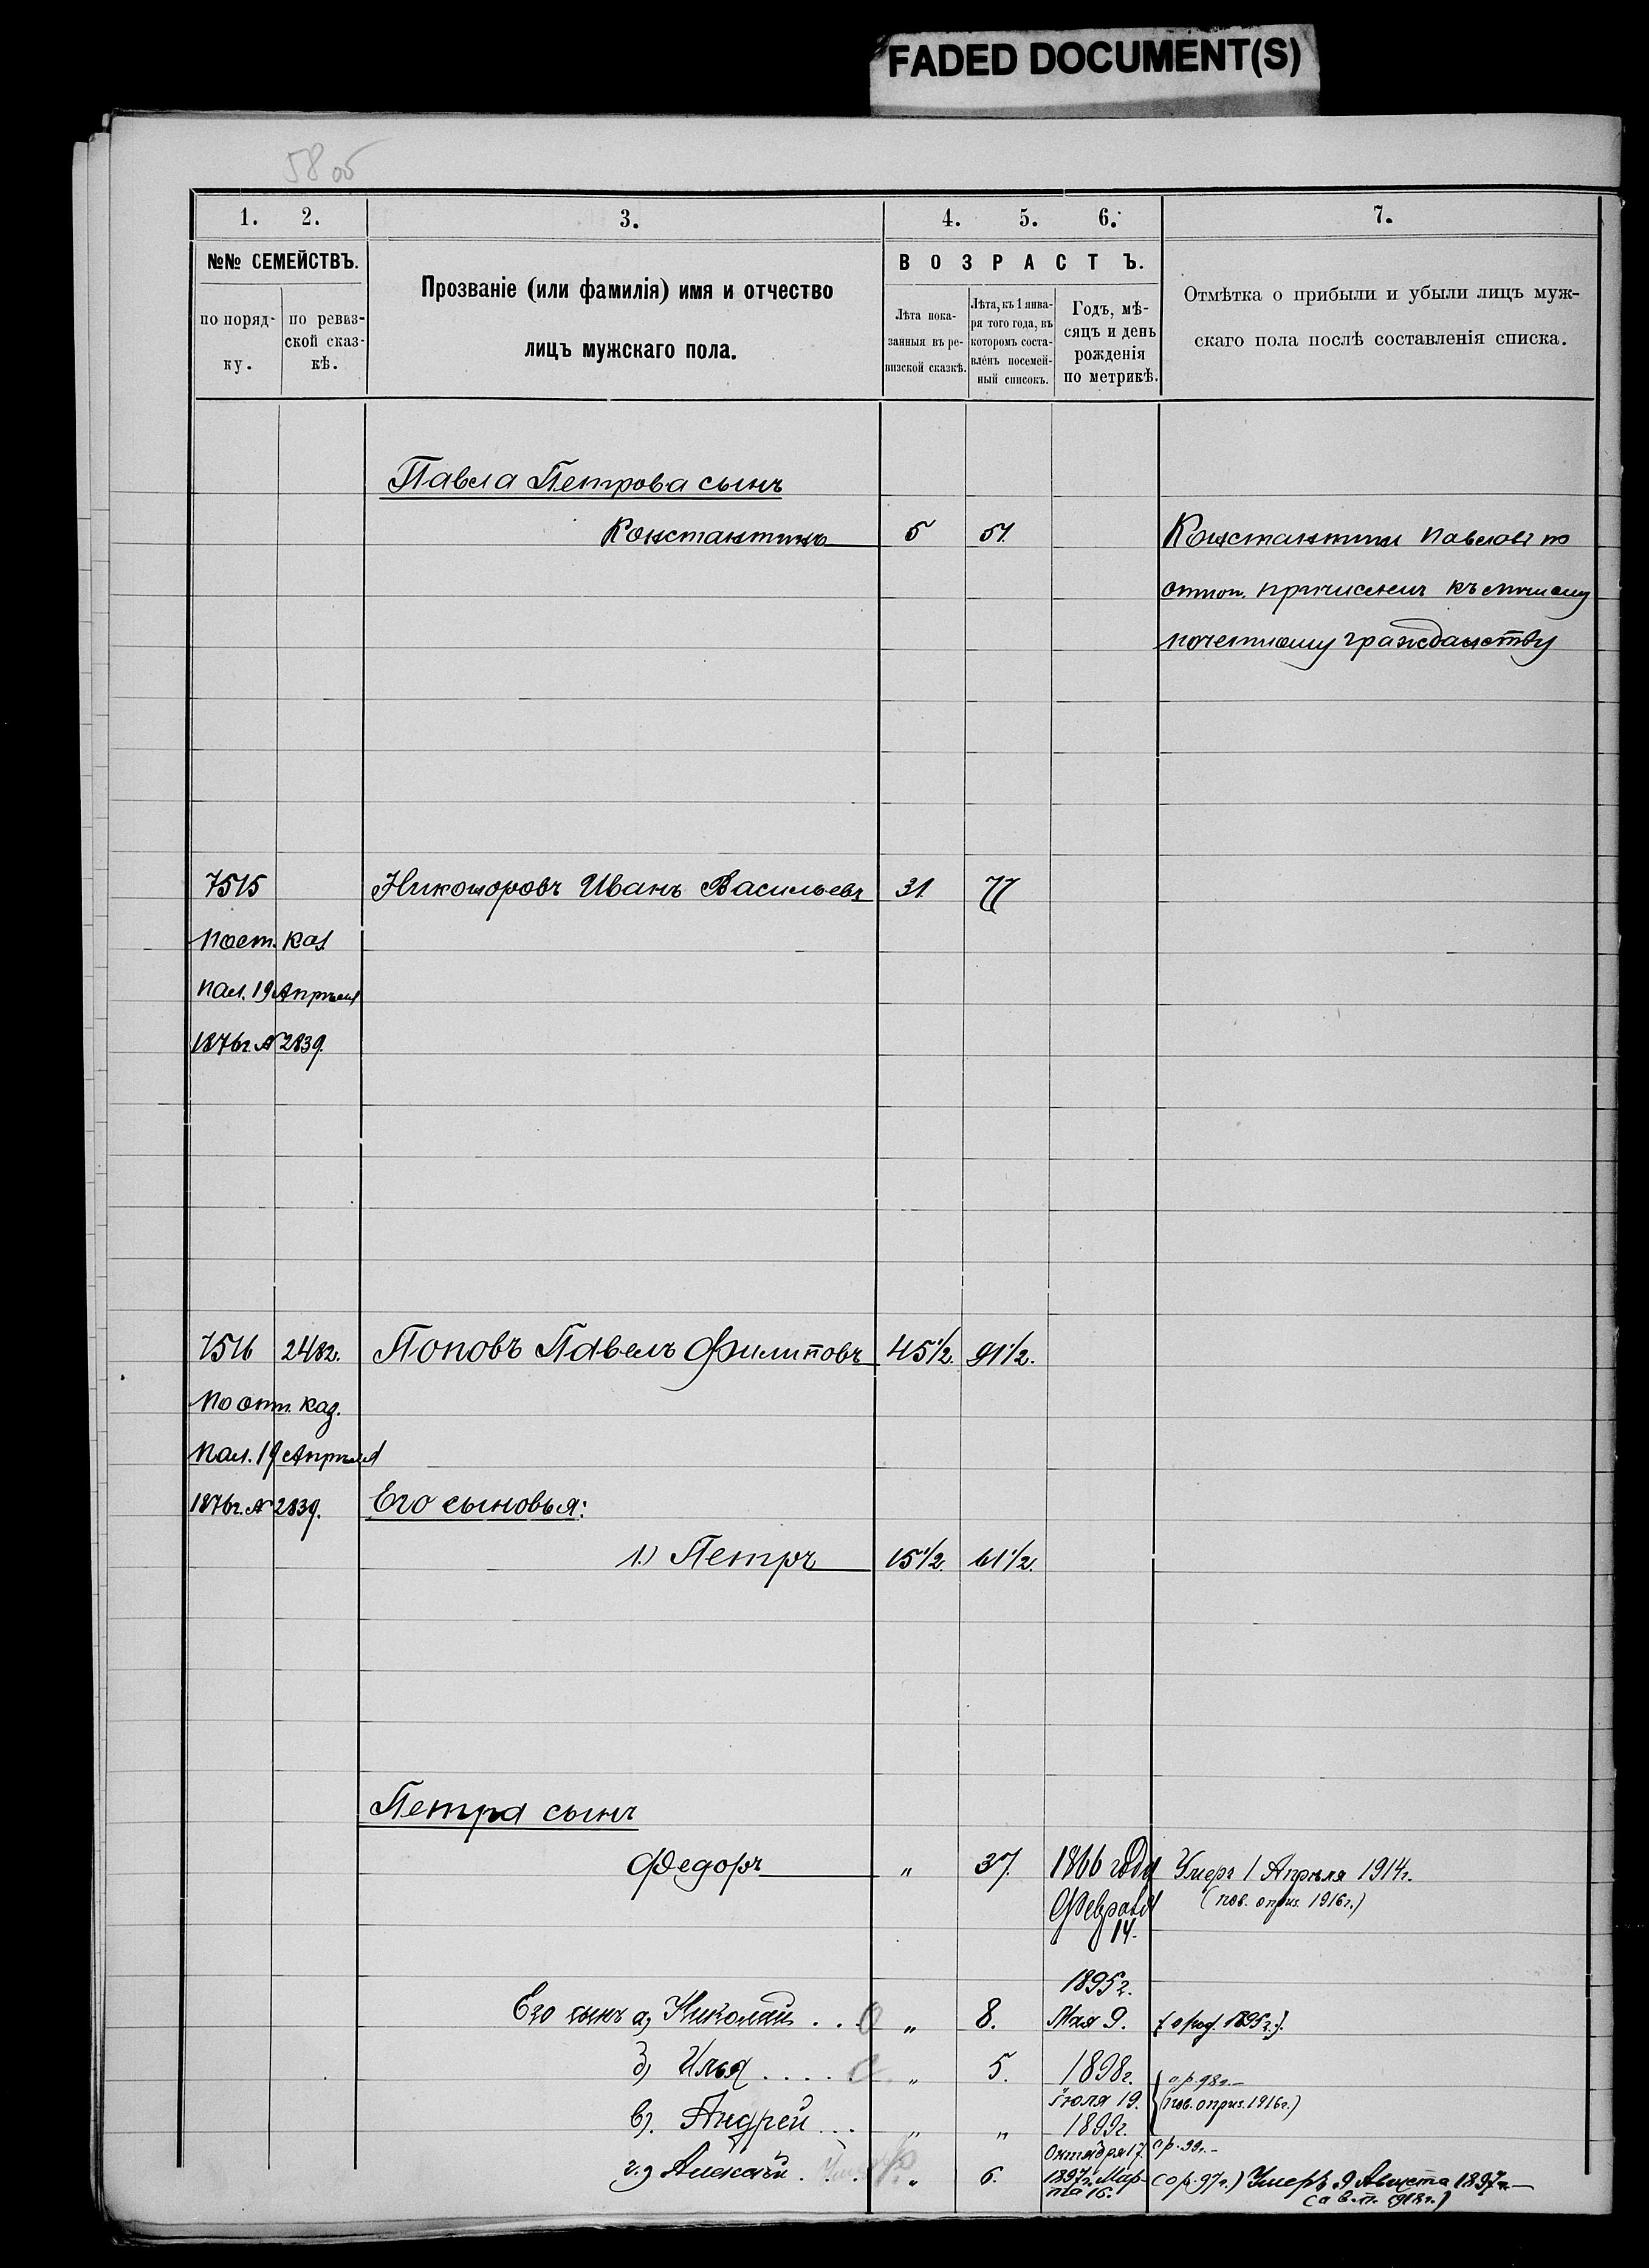 FADED DOCUMENT(S)
58 об
1. 2. 3. 4. 5. 6. 7.
№№ СЕМЕЙСТВЪ.
по поряд-
ку.
по ревиз-
ской сказ-
кѣ.
Прозваніе (или фамилія) имя и отчество
лицъ мужскаго пола.
ВОЗРАСТЪ.
Лѣта пока-
занныя въ ре-
визской сказкѣ.
Лѣта, къ 1 янва-
ря того года, въ
которомъ соста-
вленъ посемей-
ный списокъ.
Годъ, мѣ-
сяцъ и день
рожденія
по метрикѣ.
Отмѣтка о прибыли и убыли лицъ муж-
скаго пола послѣ составленія списка.
Павла Петрова сынъ
Константинъ 5 51. Константинъ Павловъ по
отнош. причисленъ къ личному
почетному гражданству
7515 Никоноровъ Иванъ Васильевъ 31. 77
каз.
пал. 19 Апрѣля
1876г. № 2839.
7516 2482. Поповъ Павелъ Филиповъ 45½. 91½.
По отн. каз.
пал. 19 Апрѣля
1876г. № 2839. Его сыновья:
1.) Петръ 15½. 61½.
Петра сынъ
Федоръ „ 37. 1866 года Умеръ 1 Апрѣля 1914г.
Февраля (пов. о приз. 1916г.)
14.
1895г.
Его сынъ а) Николай . . . „ 8. Мая 9. (о род. 1895г.).
б) Илья . . . . „ 5. 1898г. о р. 98г.—
Іюля 19. (пов. о приз. 1916г.)
в). Андрей . . . „ „ 1899г.
Октября 17. о р. 99г.—
г.) Алексѣй . . . „ 6. 1897г. Мар- (о р. 97г.) Умеръ 9 Августа 1897г.—
та 16.